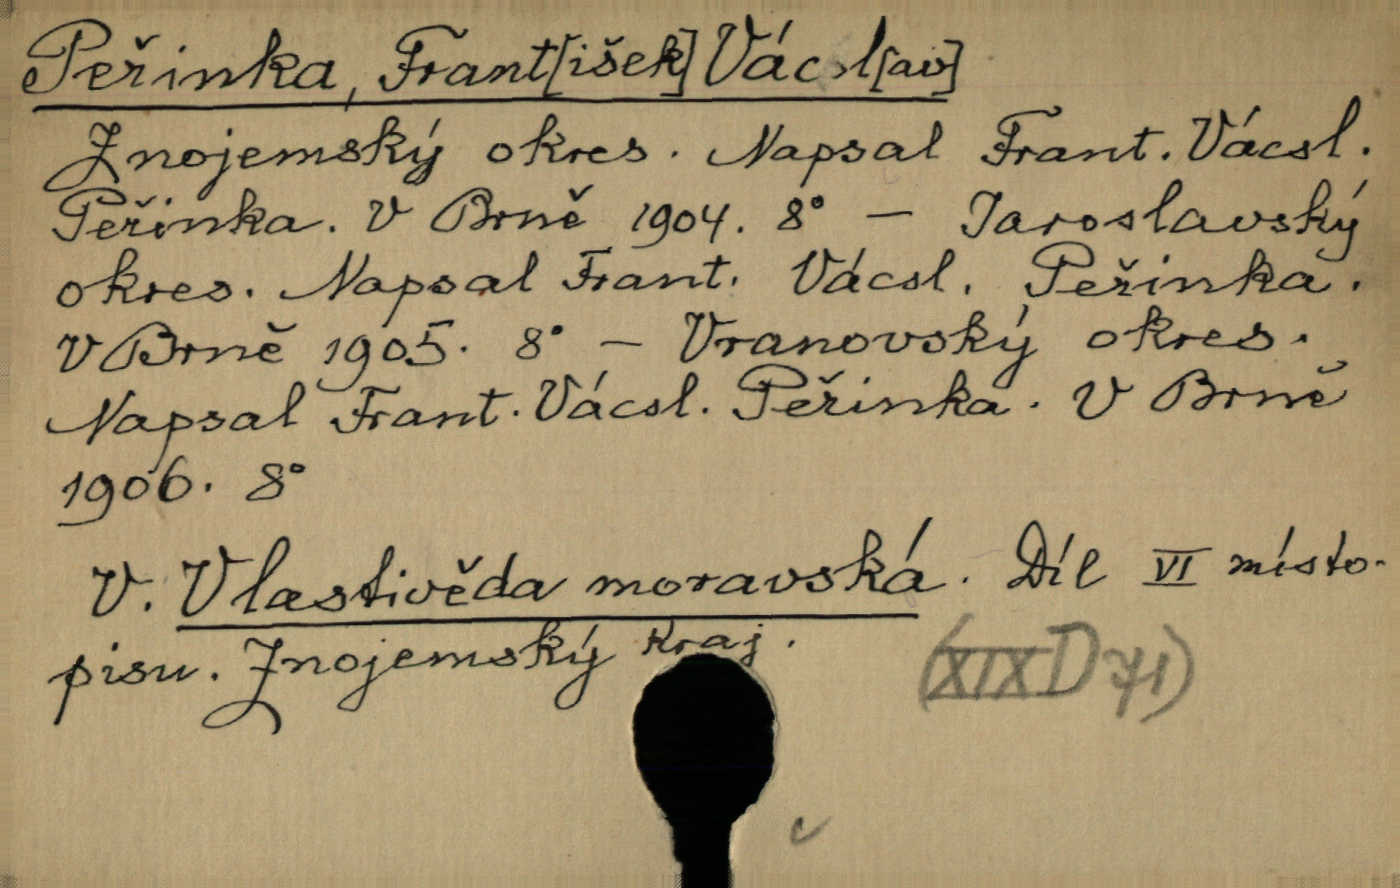 Peřinka, Frant[išek] Vácsl[av]
Znojemský okres. Napsal Frant. Vácsl.
Peřinka. V Brně 1904. 8° — Jaroslavský
okres. Napsal Frant. Vácsl. Peřinka.
V Brně 1905. 8° — Vranovský okres.
Napsal Frant. Vácsl. Peřinka. V Brně
1906. 8°
V. Vlastivěda moravská. Díl VI místo-
pisu. Znojemský kraj.
(XIX D 71)